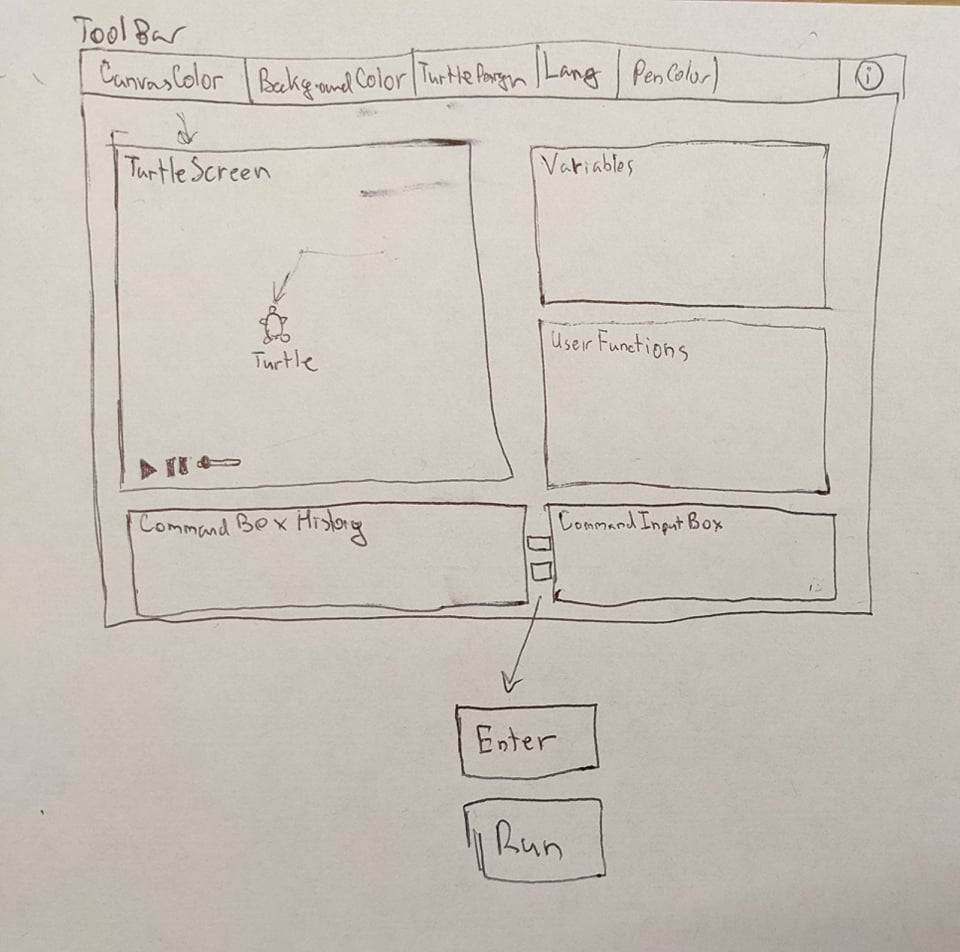 ToolBar
CanvasColor BackgroundColor TurtleDesign Lang PenColor i
TurtleScreen
Variables
Turtle
User Functions
Command Box History
Command Input Box
Enter
Run